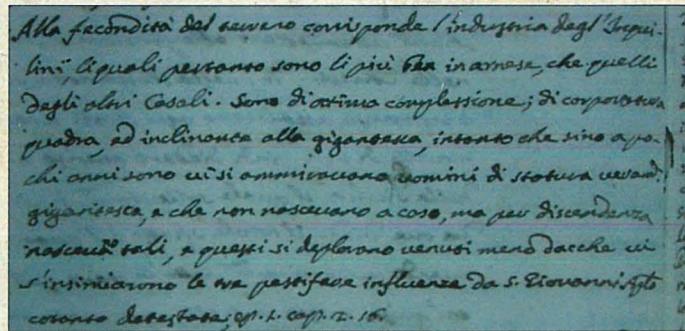 Alla fecondità del terreno corrisponde l'industria degl'Inqui-
lini, li quali pertanto sono li più ben in arnese, che quelli
degli altri Casali. Sono di ottima complessione; di corporatura
quadra, ed inclinante alla gigantesca, intanto che sino a po-
chi anni sono vi si ammiravano uomini di statura
gigantesca, e che non nascevano a caso, ma per discendenza
tali, e questi si deplorano venuti meno dacche vi
s'insinuarono le tre pestifere influenze da S. Giovanni
cotanto detestate; ep. 1. cap. 2. 16.